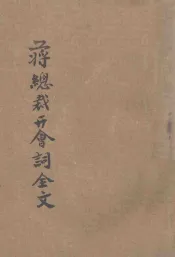 蔣總裁開會詞全文